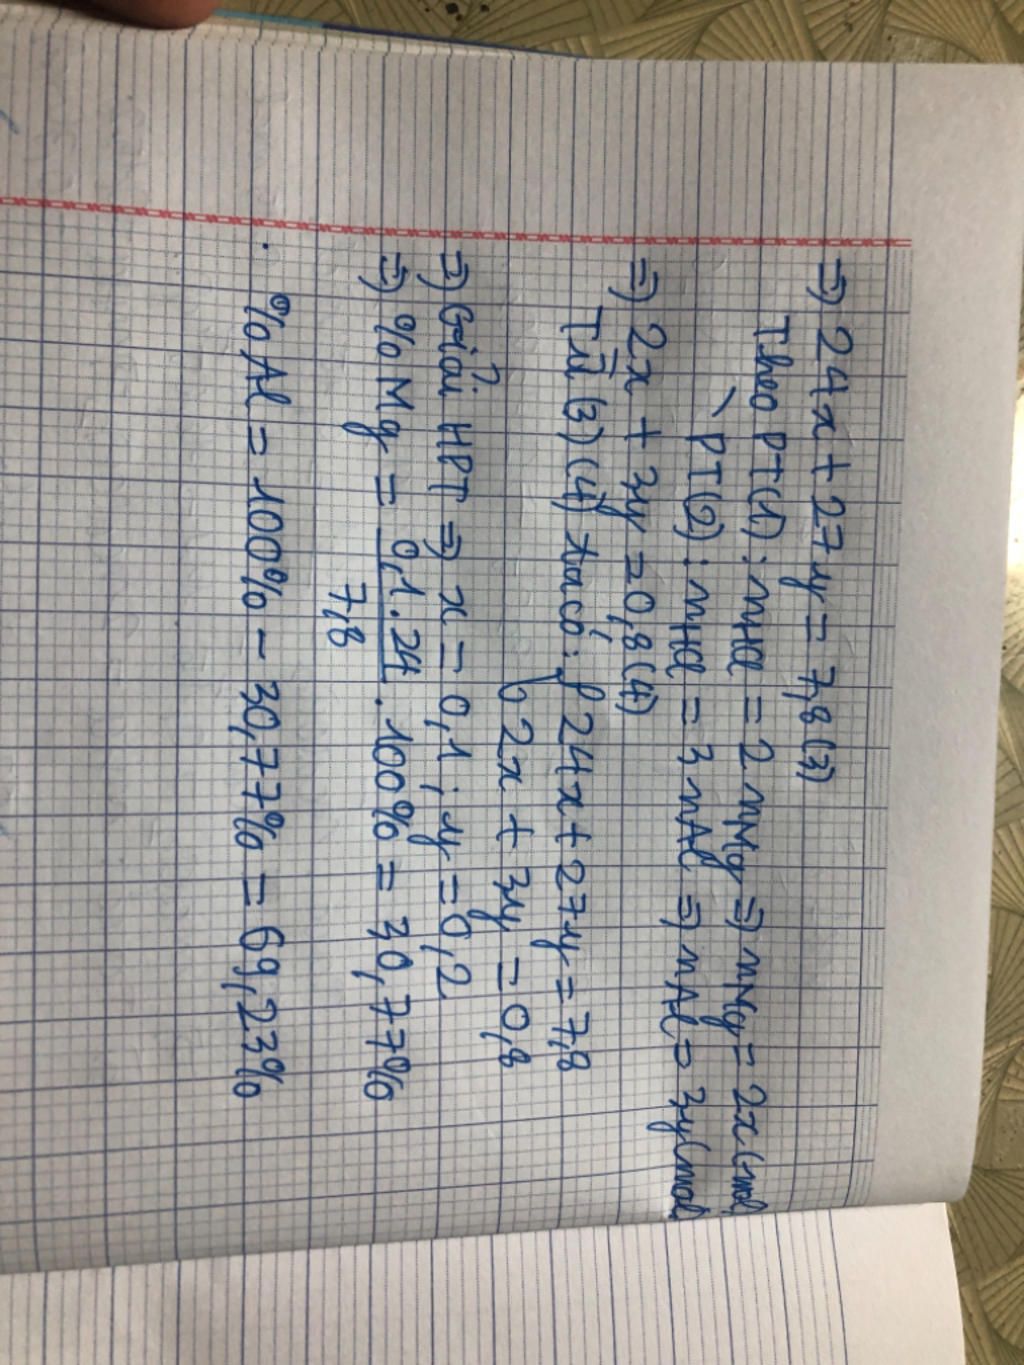 =) 24x + 27y = 7,8 (3)
Theo PT(1) : nHCl = 2 nMg =) nMg = 2x (mol)
PT(2) : nHCl = 3 nAl =) nAl = 3y (mol)
=) 2x + 3y = 0,8 (4)
Từ (3) (4) ta có : { 24x + 27y = 7,8
2x + 3y = 0,8
=) Giải HPT =) x = 0,1 ; y = 0,2
=) % Mg = 0,1 . 24 / 7,8 . 100% = 30,77%
% Al = 100% - 30,77% = 69,23%